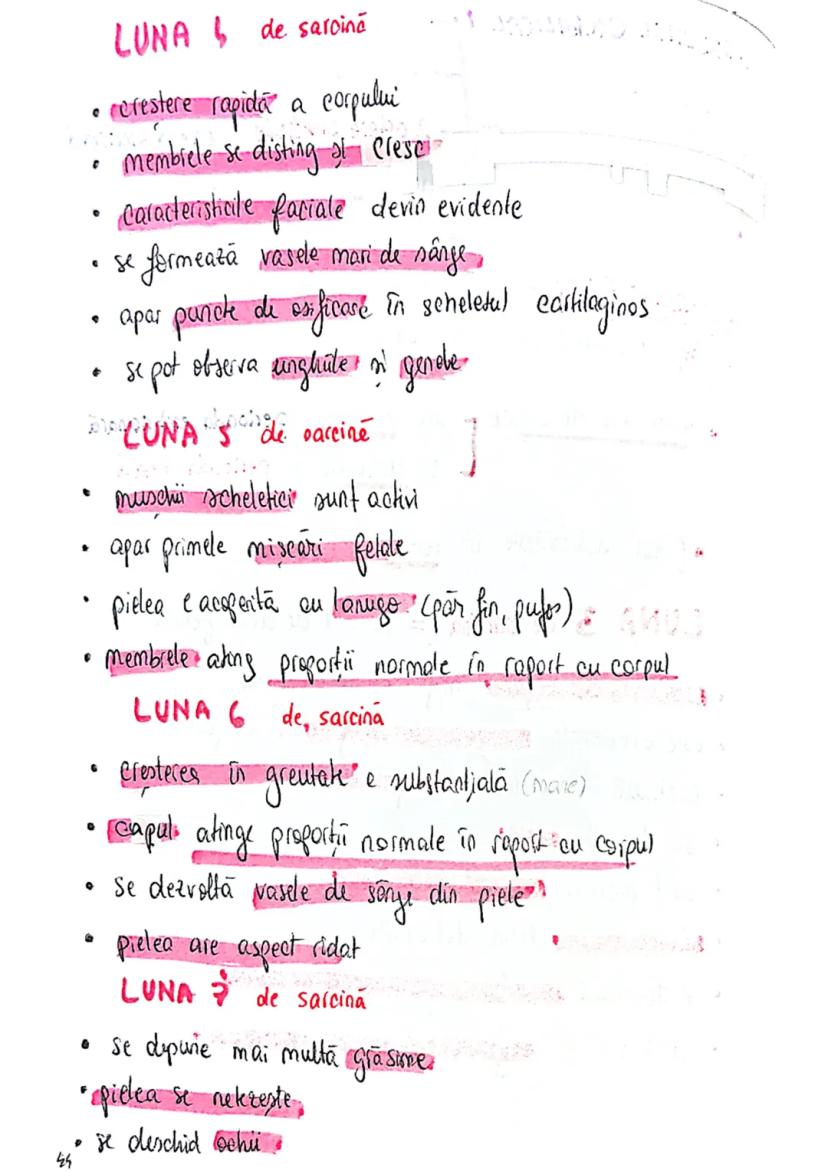 LUNA 4 de sarcină
• creștere rapidă a corpului
• membrele se disting și cresc
• caracteristicile faciale devin evidente
• se formează vasele mari de sânge
• apar puncte de osificare în scheletul cartilaginos
• se pot observa unghiile și genele
LUNA 5 de sarcină
• mușchii scheletici sunt activi
• apar primele mișcări fetale
• pielea e acoperită cu lanugo (păr fin, pufos)
• membrele ating proporții normale în raport cu corpul
LUNA 6 de sarcină
• creșterea în greutate e substanțială (mare)
• capul atinge proporții normale în raport cu corpul
• se dezvoltă vasele de sânge din piele
• pielea are aspect ridat
LUNA 7 de sarcină
• se depune mai multă grăsime
• pielea se netezește
• se deschid ochii
44